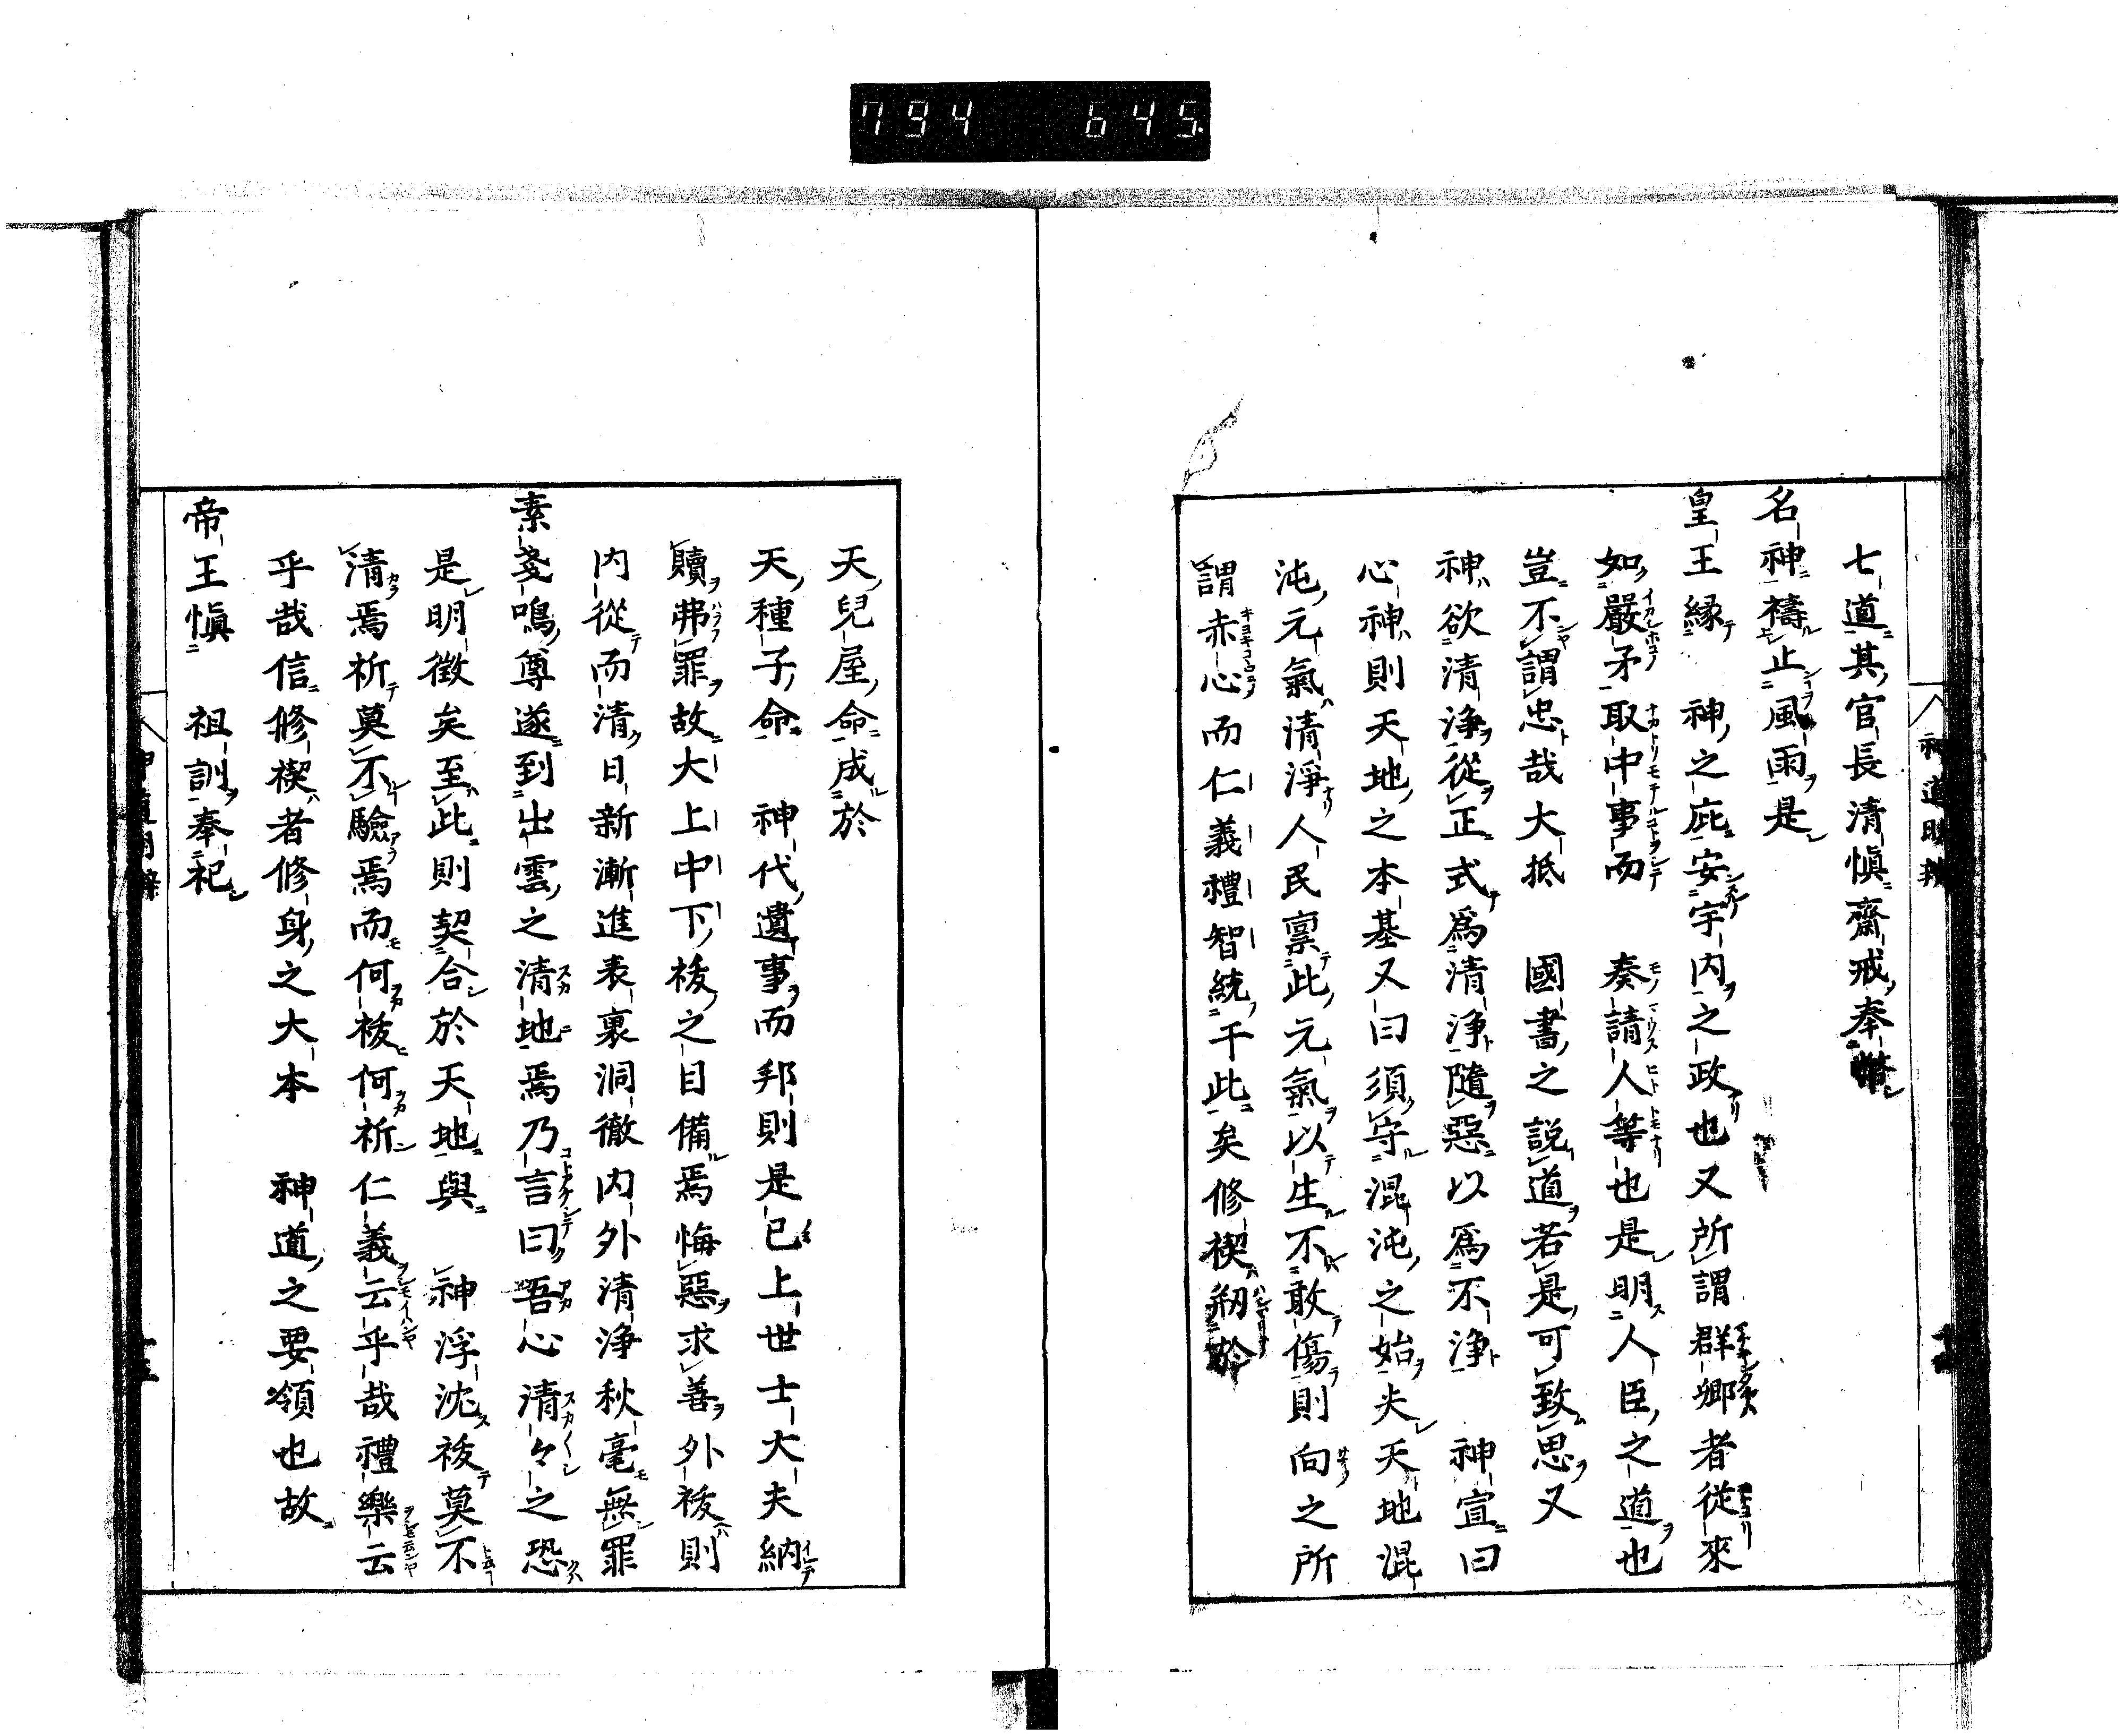 794 645
七道其官長清愼齋戒奉幣
名神禱止風雨是
皇王緣 神之庇安宇内之政也又所謂群卿者從來
如嚴矛取中事而 奏請人等也是明人臣之道也
豈不謂忠哉大抵 國書之説道若是可致思又
神欲清淨從正式爲清淨隨惡以爲不淨 神宣曰
心神則天地之本基又曰須守混沌之始夫天地混
沌元氣清淨人民禀此元氣以生不敢傷則向之所
謂赤心而仁義禮智統于此矣修禊剏於
天兒屋命成於
天種子命 神代遺事而邦則是已上世士大夫納
贖弗罪故大上中下祓之目備焉悔惡求善外祓則
内從而清日新漸進表裏洞徹内外清淨秋毫無罪
素戔鳴尊遂到出雲之清地焉乃言曰吾心清々之恐
是明徵矣至此則契合於天地與 神浮沈祓莫不
清焉祈莫不驗焉而何祓何祈仁義云乎哉禮樂云
乎哉信修禊者修身之大本 神道之要領也故
帝王愼 祖訓奉祀